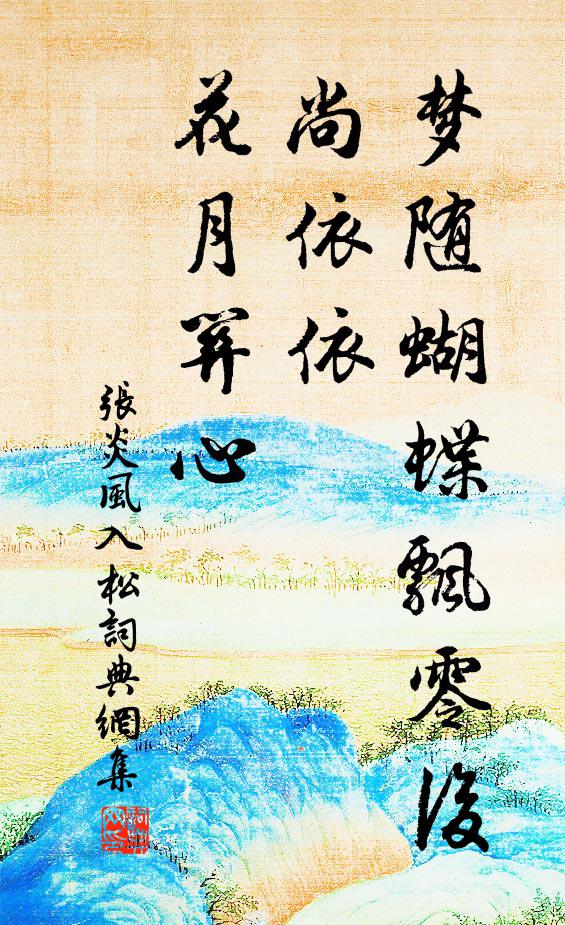 梦随蝴蝶飄零後
尚依依
花月關心
張炎風入松詞典網集